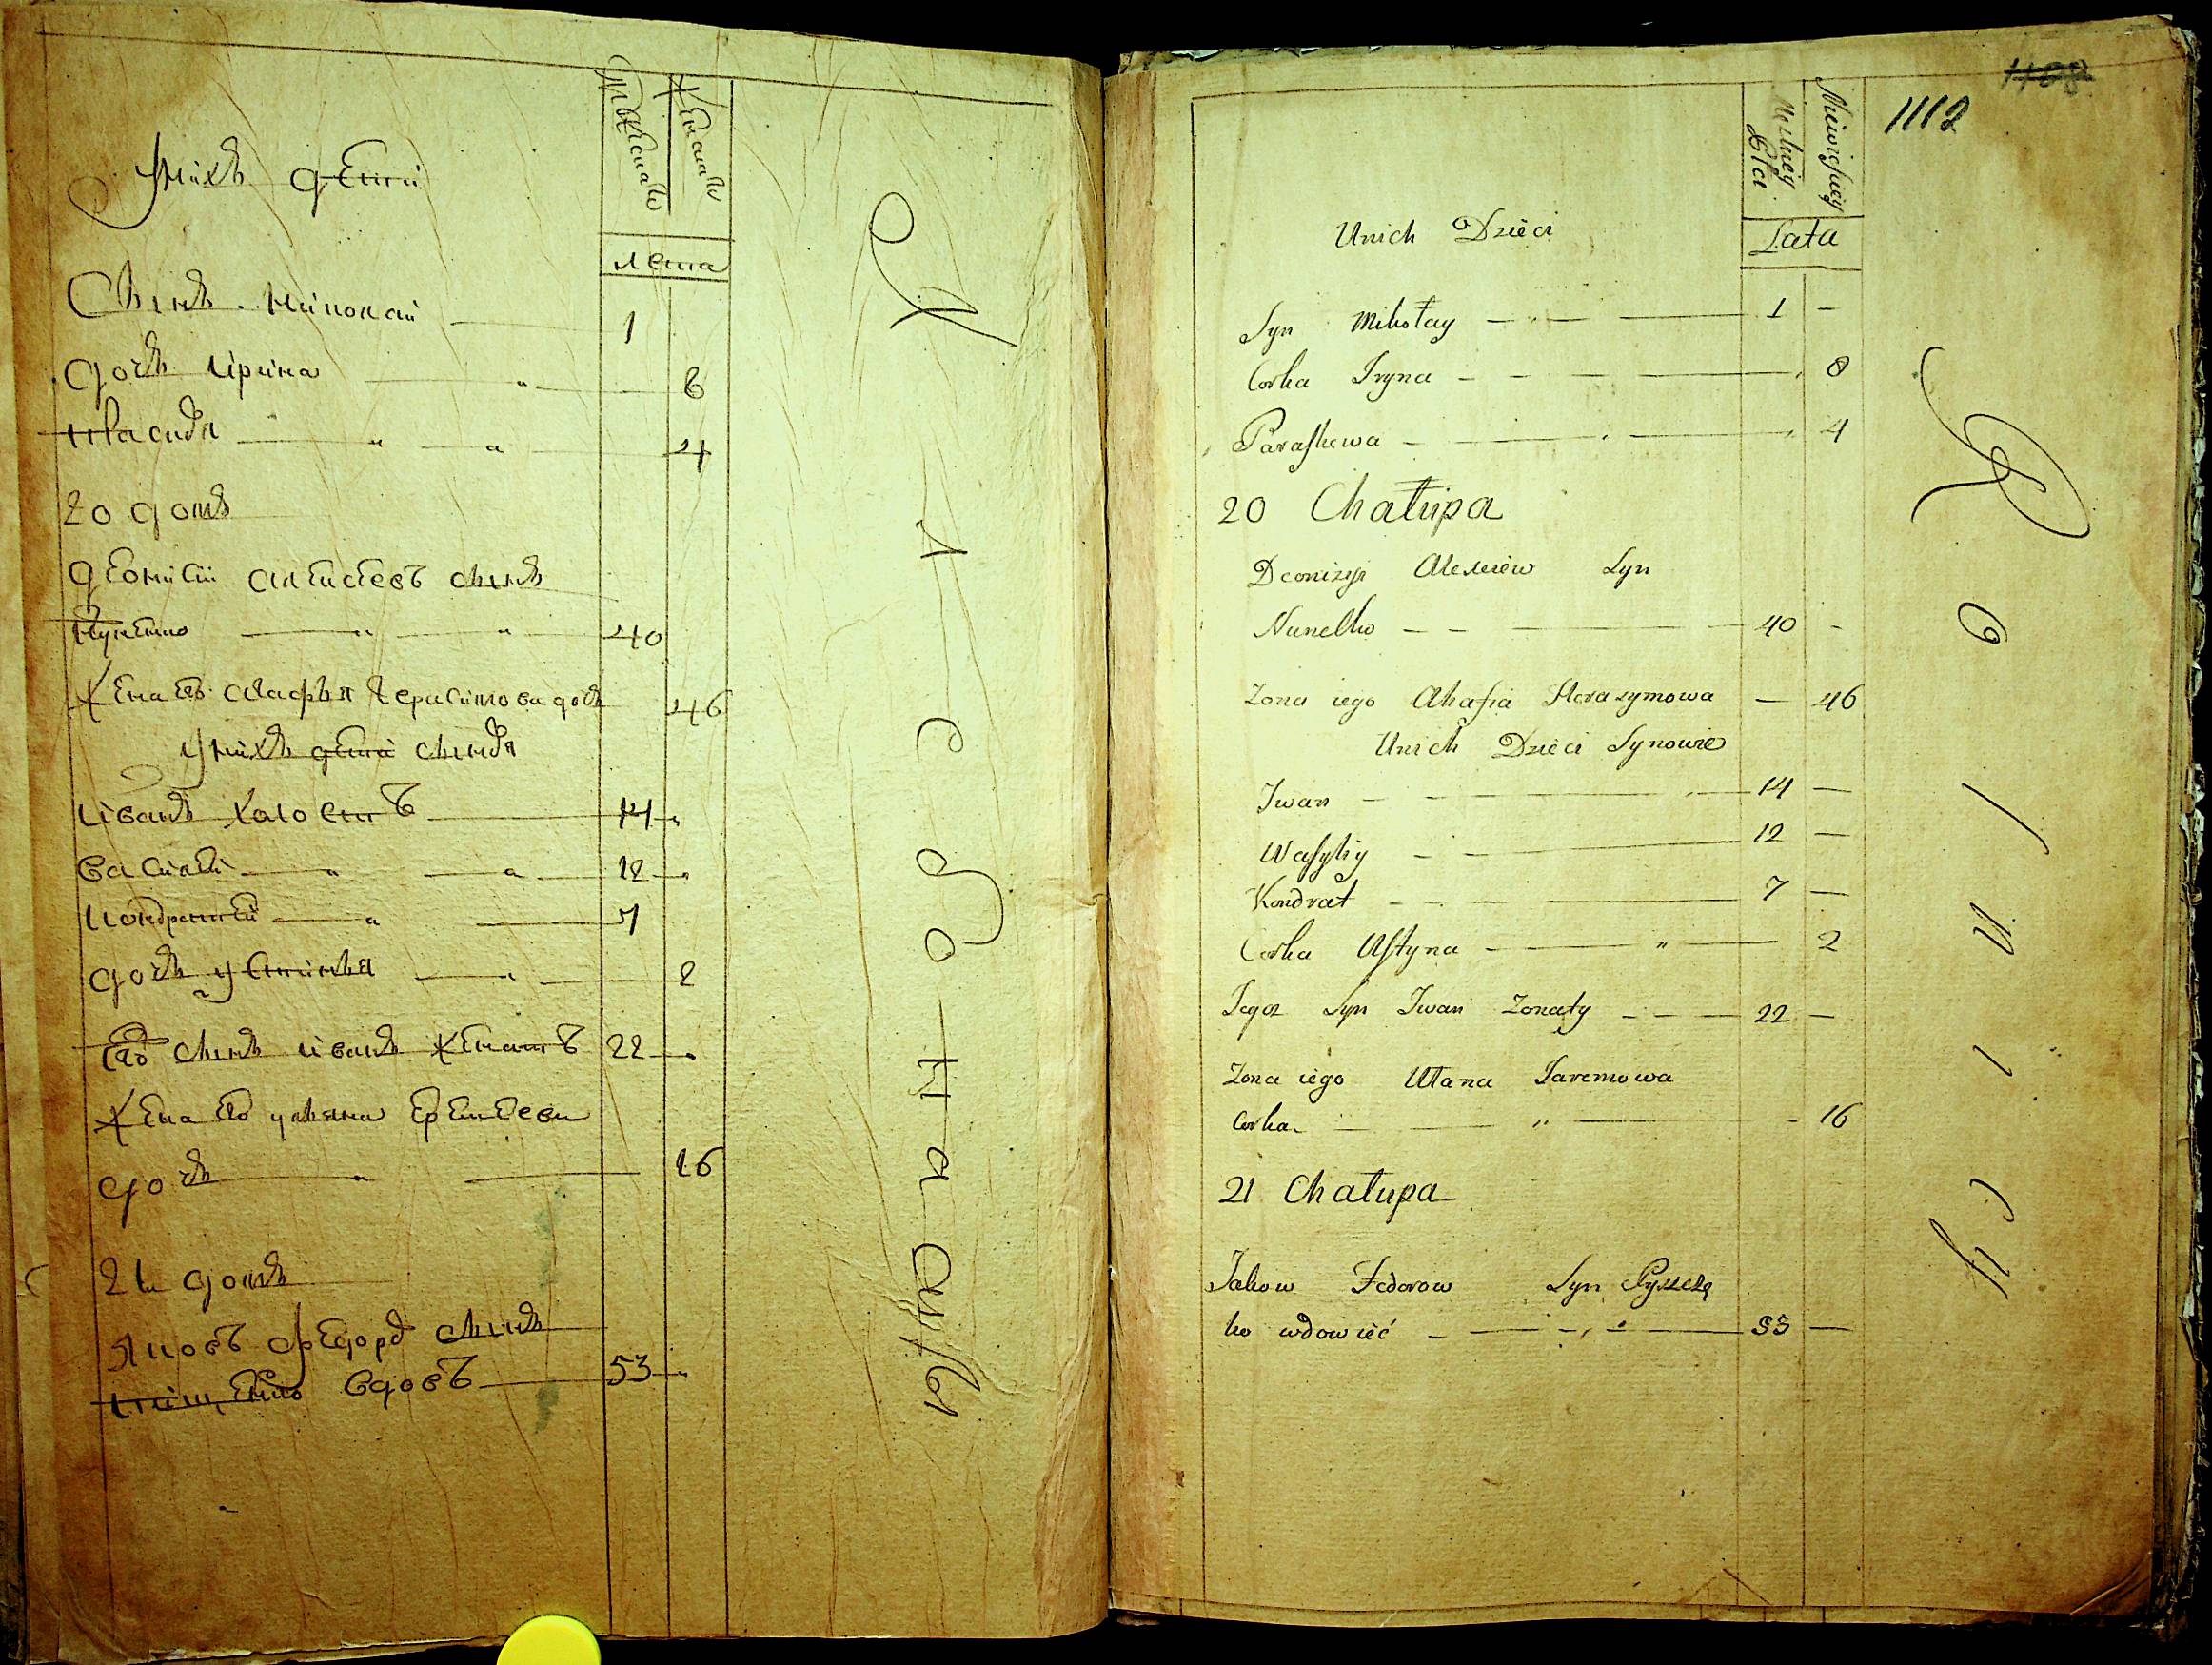 У нихъ дети
мужеска
женска
лета
Сынъ Николай 1
дочь Ирина 8
4
20 домъ
Деонисий Алексеевъ сынъ
Нунелко 40
Жена его Агафья Герасимова дочь 46
У нихъ дети сынья
Иванъ холостъ 14
Василей 12
Кондратей 7
дочь Устинья 2
Его сынъ Иванъ женатъ 22
Жена его Ульяна Еремеева
дочь 16
21 домъ
Яковъ Федоровъ сынъ
вдовъ 53
1112
1108
Męzkiey Płci
Niewieściey
Unich Dzieci
Lata
Syn Mikołay 1 –
Corka Iryna 8
Paraskewa 4
20 Chałupa
Deonizyi Alexiew Syn
Nunelko 40 -
Zona iego Ahafia Herasymowa — 46
Unich Dzieci Synowie
Iwan 14 —
Wasyliy 12 —
Kondrat 7 —
Corka Ustyna " 2
Iegoż Syn Iwan Zonaty 22 —
Zona iego Ulana Iaremowa
Corka " 16
21 Chałupa
Iakow Fedorow Syn Pyszczę
ko wdowiec 53 —